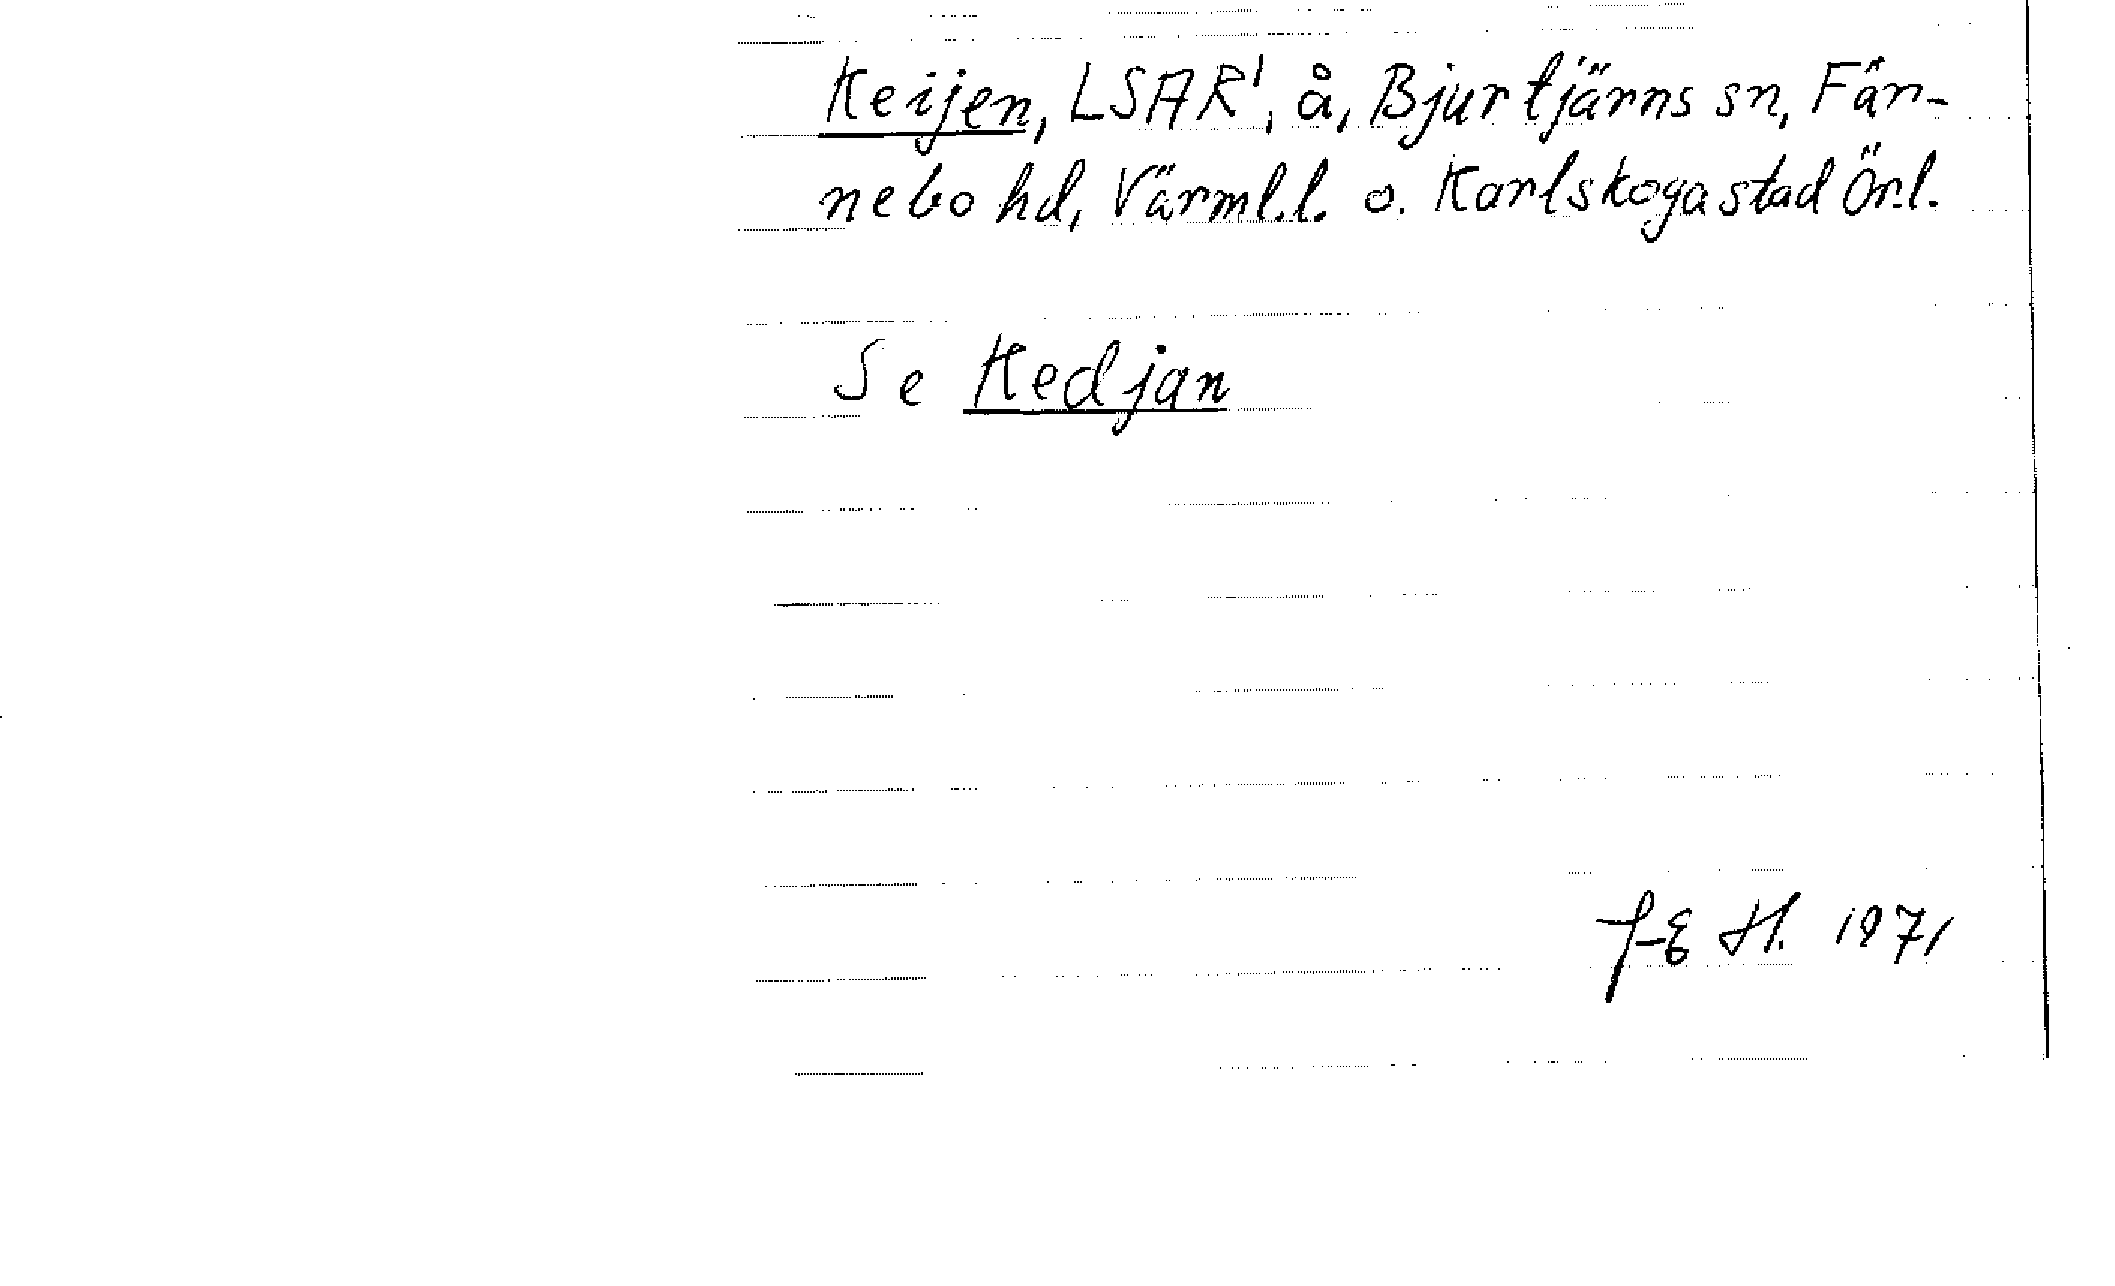 Keijen, LSAR¹, å, Bjurtjärns sn, Fär-
nebo hd, Värml.l. o. Karlskoga stad Ör.l.
Se Kedjan
J-E H. 1971